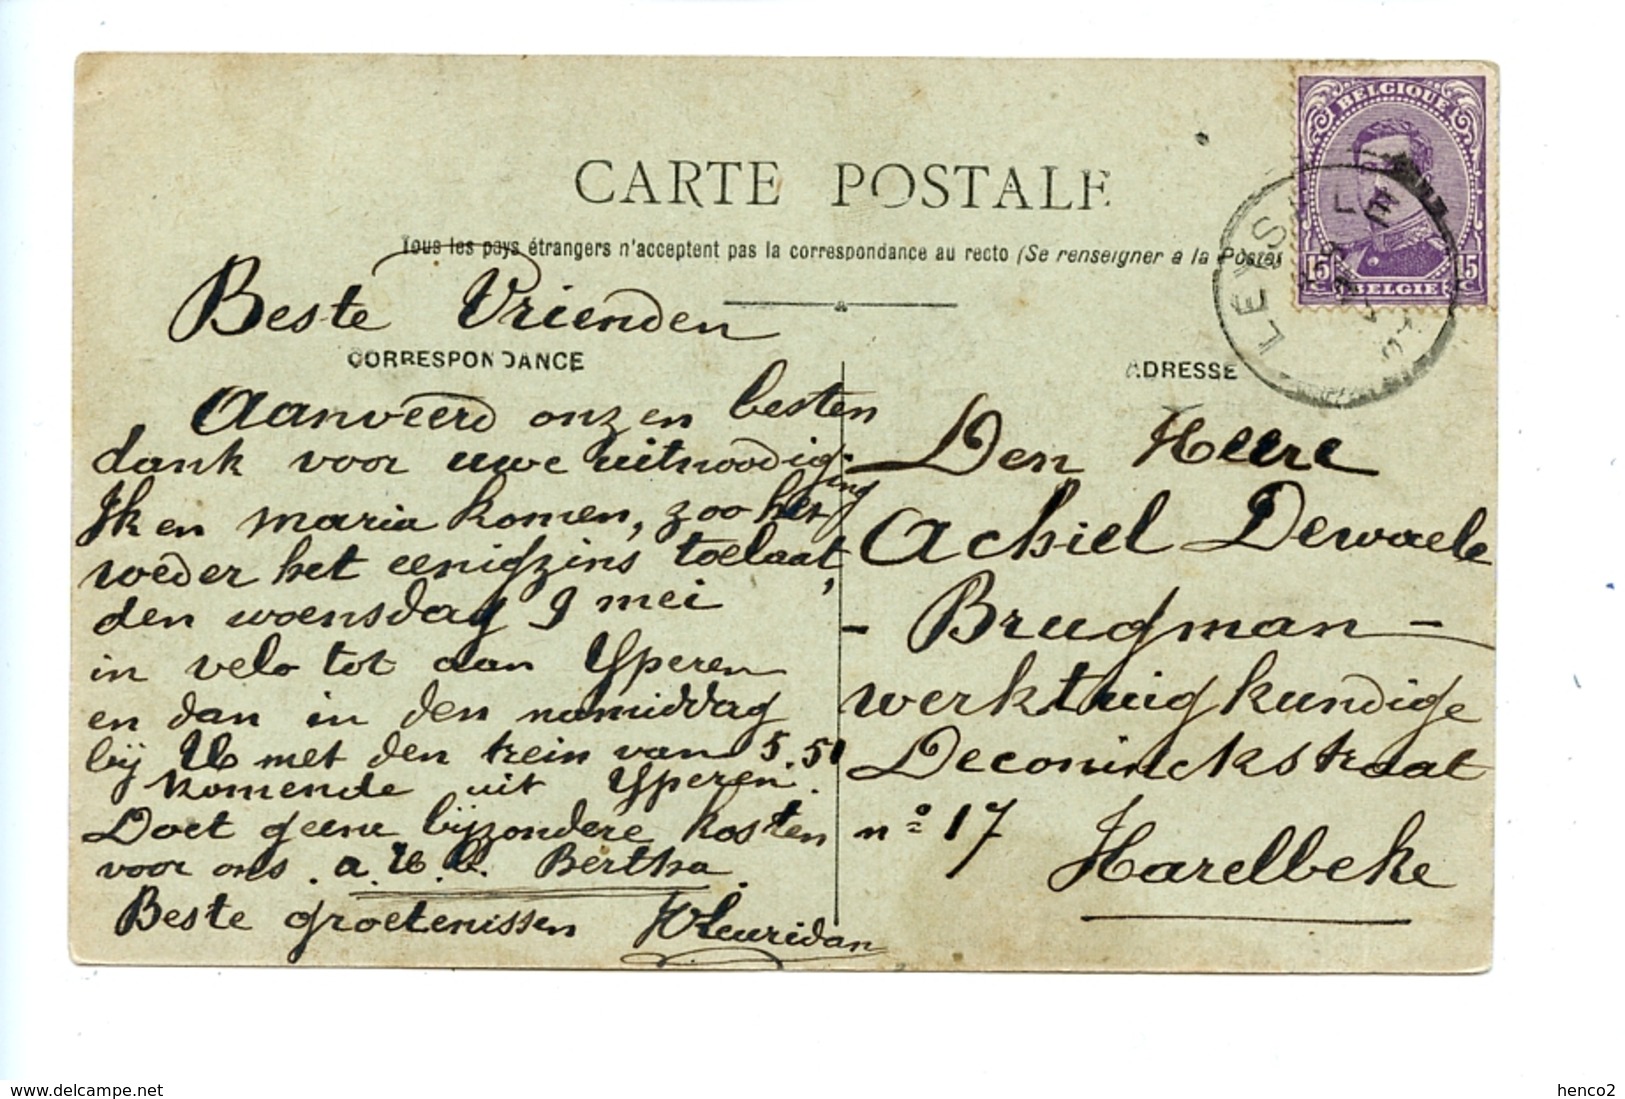 CARTE POSTALE
Tous les pays étrangers n'acceptent pas la correspondance au recto (Se renseigner à la Poste)
BELGIQUE
15 15
BELGIE
LEYSELE
Beste Vrienden
CORRESPONDANCE
Aanveerd onzen besten
dank voor uwe uitnoodiging
Ik en Maria komen, zoo het
weder het eenigzins toelaat,
den woensdag 9 mei
in velo tot aan Yperen
en dan in den namiddag
bij U met den trein van 5.51
komende uit Yperen.
Doet geene bijzondere kosten
voor ons. Bertha.
Beste groetenissen
ADRESSE
Den Heere
Achiel Dewaele
- Brugman -
werktuigkundige
Deconinckstraat
n° 17
Harelbeke
www.delcampe.net
henco2